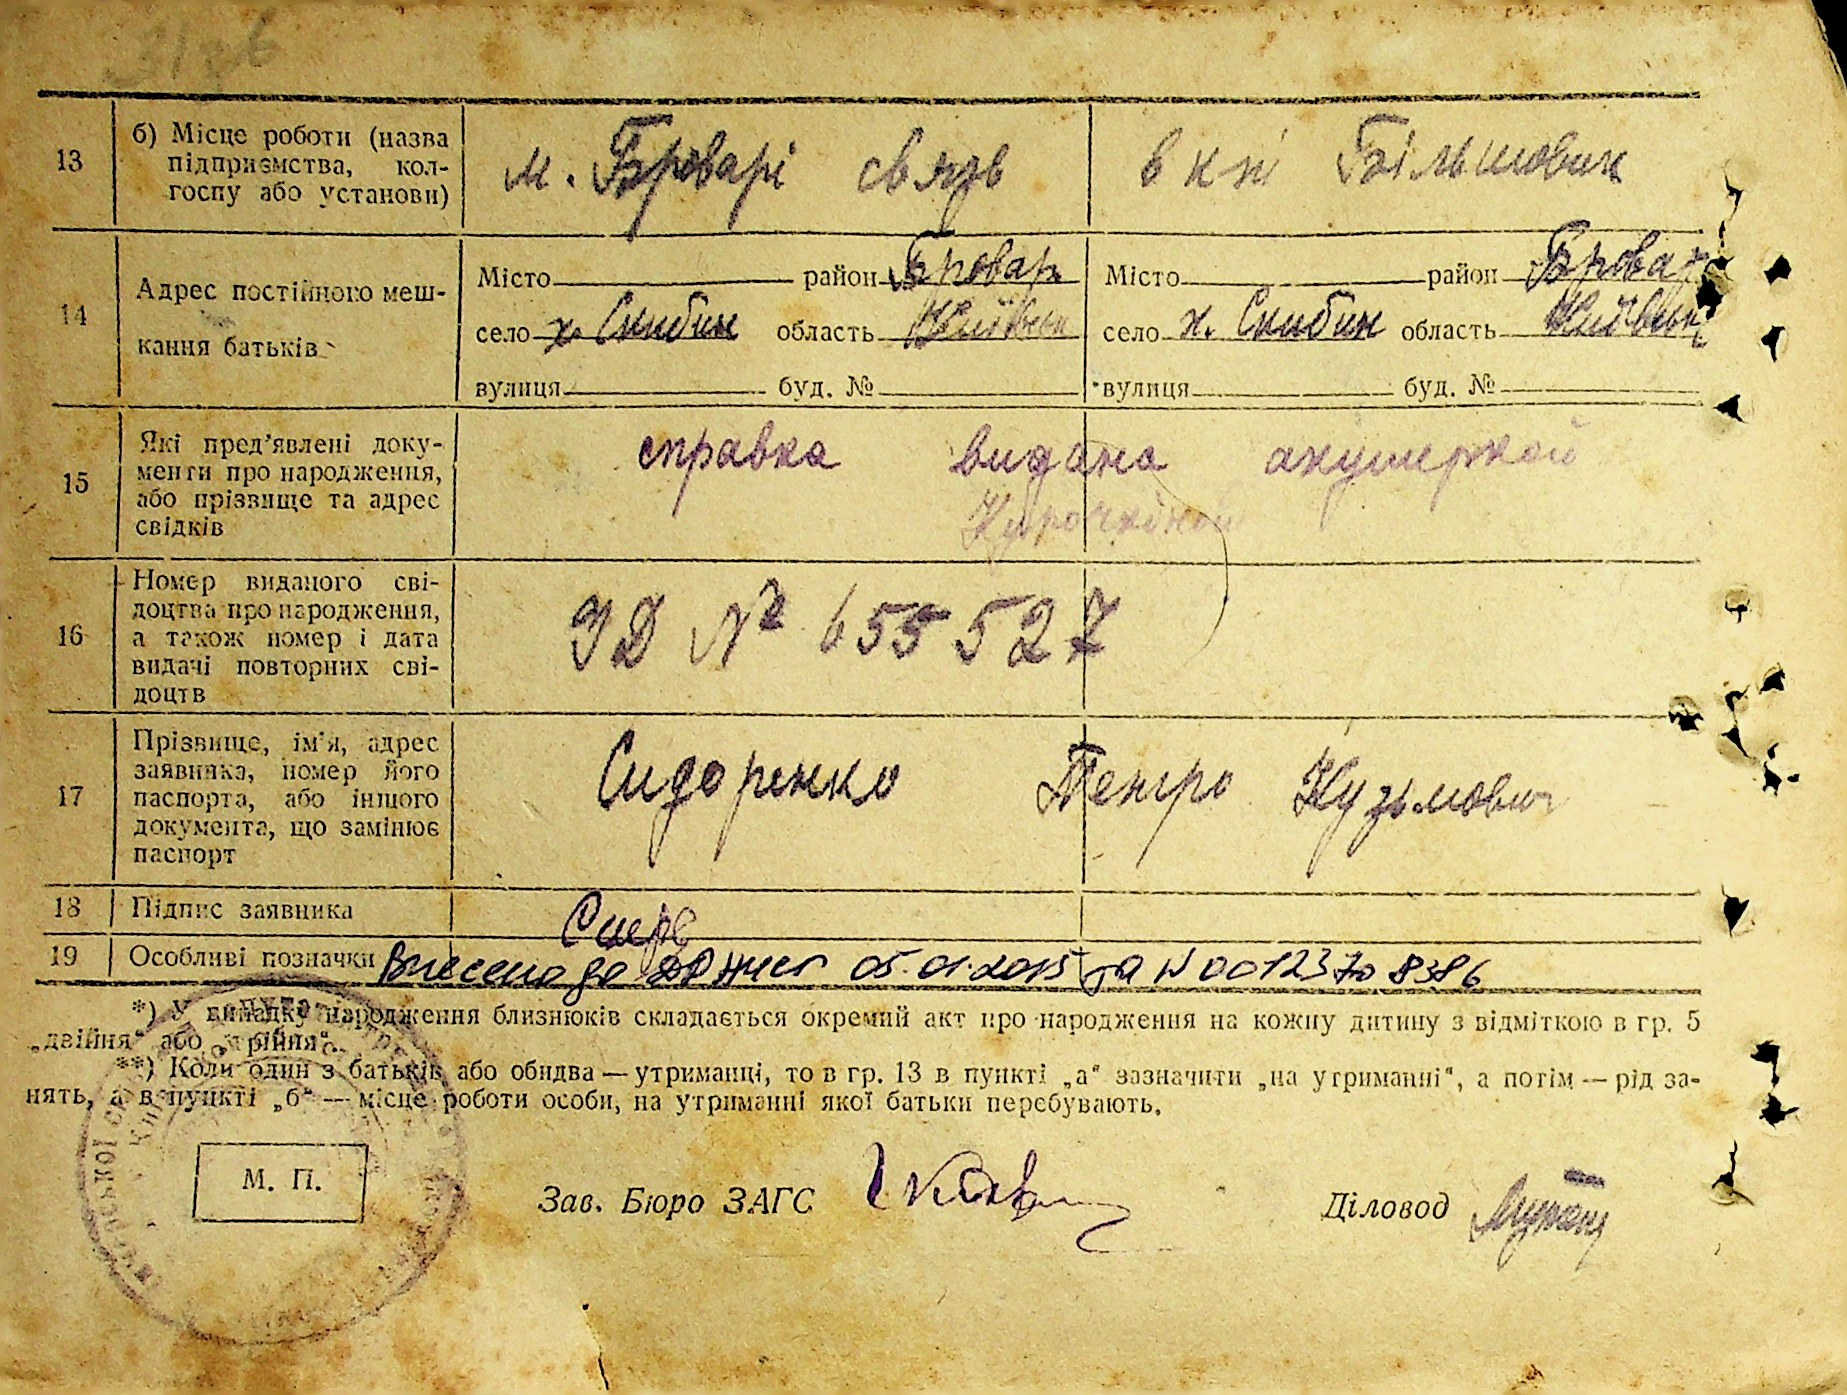 13 б) Місце роботи (назва підприємства, кол-госпу або установи) м. Броварі связв в кпі Більшовик
14 Адрес постійного меш-кання батьків
Місто район Бровар Місто район Бровар
село х. Скибин область Київськ село х. Скибин область Київськ
вулиця буд. № вулиця буд. №
15 Які пред'явлені доку-менти про народження, або прізвище та адрес свідків справка видана акушеркой
Курочкіной
16 Номер виданого сві-доцтва про народження, а також номер і дата видачі повторних сві-доцтв ЗД № 655527
17 Прізвище, ім'я, адрес заявника, номер його паспорта, або іншого документа, що замінює паспорт Сидоренко Петро Кузьмович
18 Підпис заявника
19 Особливі позначки Внесено до 05.01.2015 за N 00123708386
*) У випадку народження близнюків складається окремий акт про народження на кожну дитину з відміткою в гр. 5
„двійня“ або „трійня“.
**) Коли один з батьків або обидва — утриманці, то в гр. 13 в пункті „а“ зазначити „на утриманні“, а потім — рід за-
нять, а в пункті „б“ — місце роботи особи, на утриманні якої батьки перебувають.
М. П.
Зав. Бюро ЗАГС Діловод